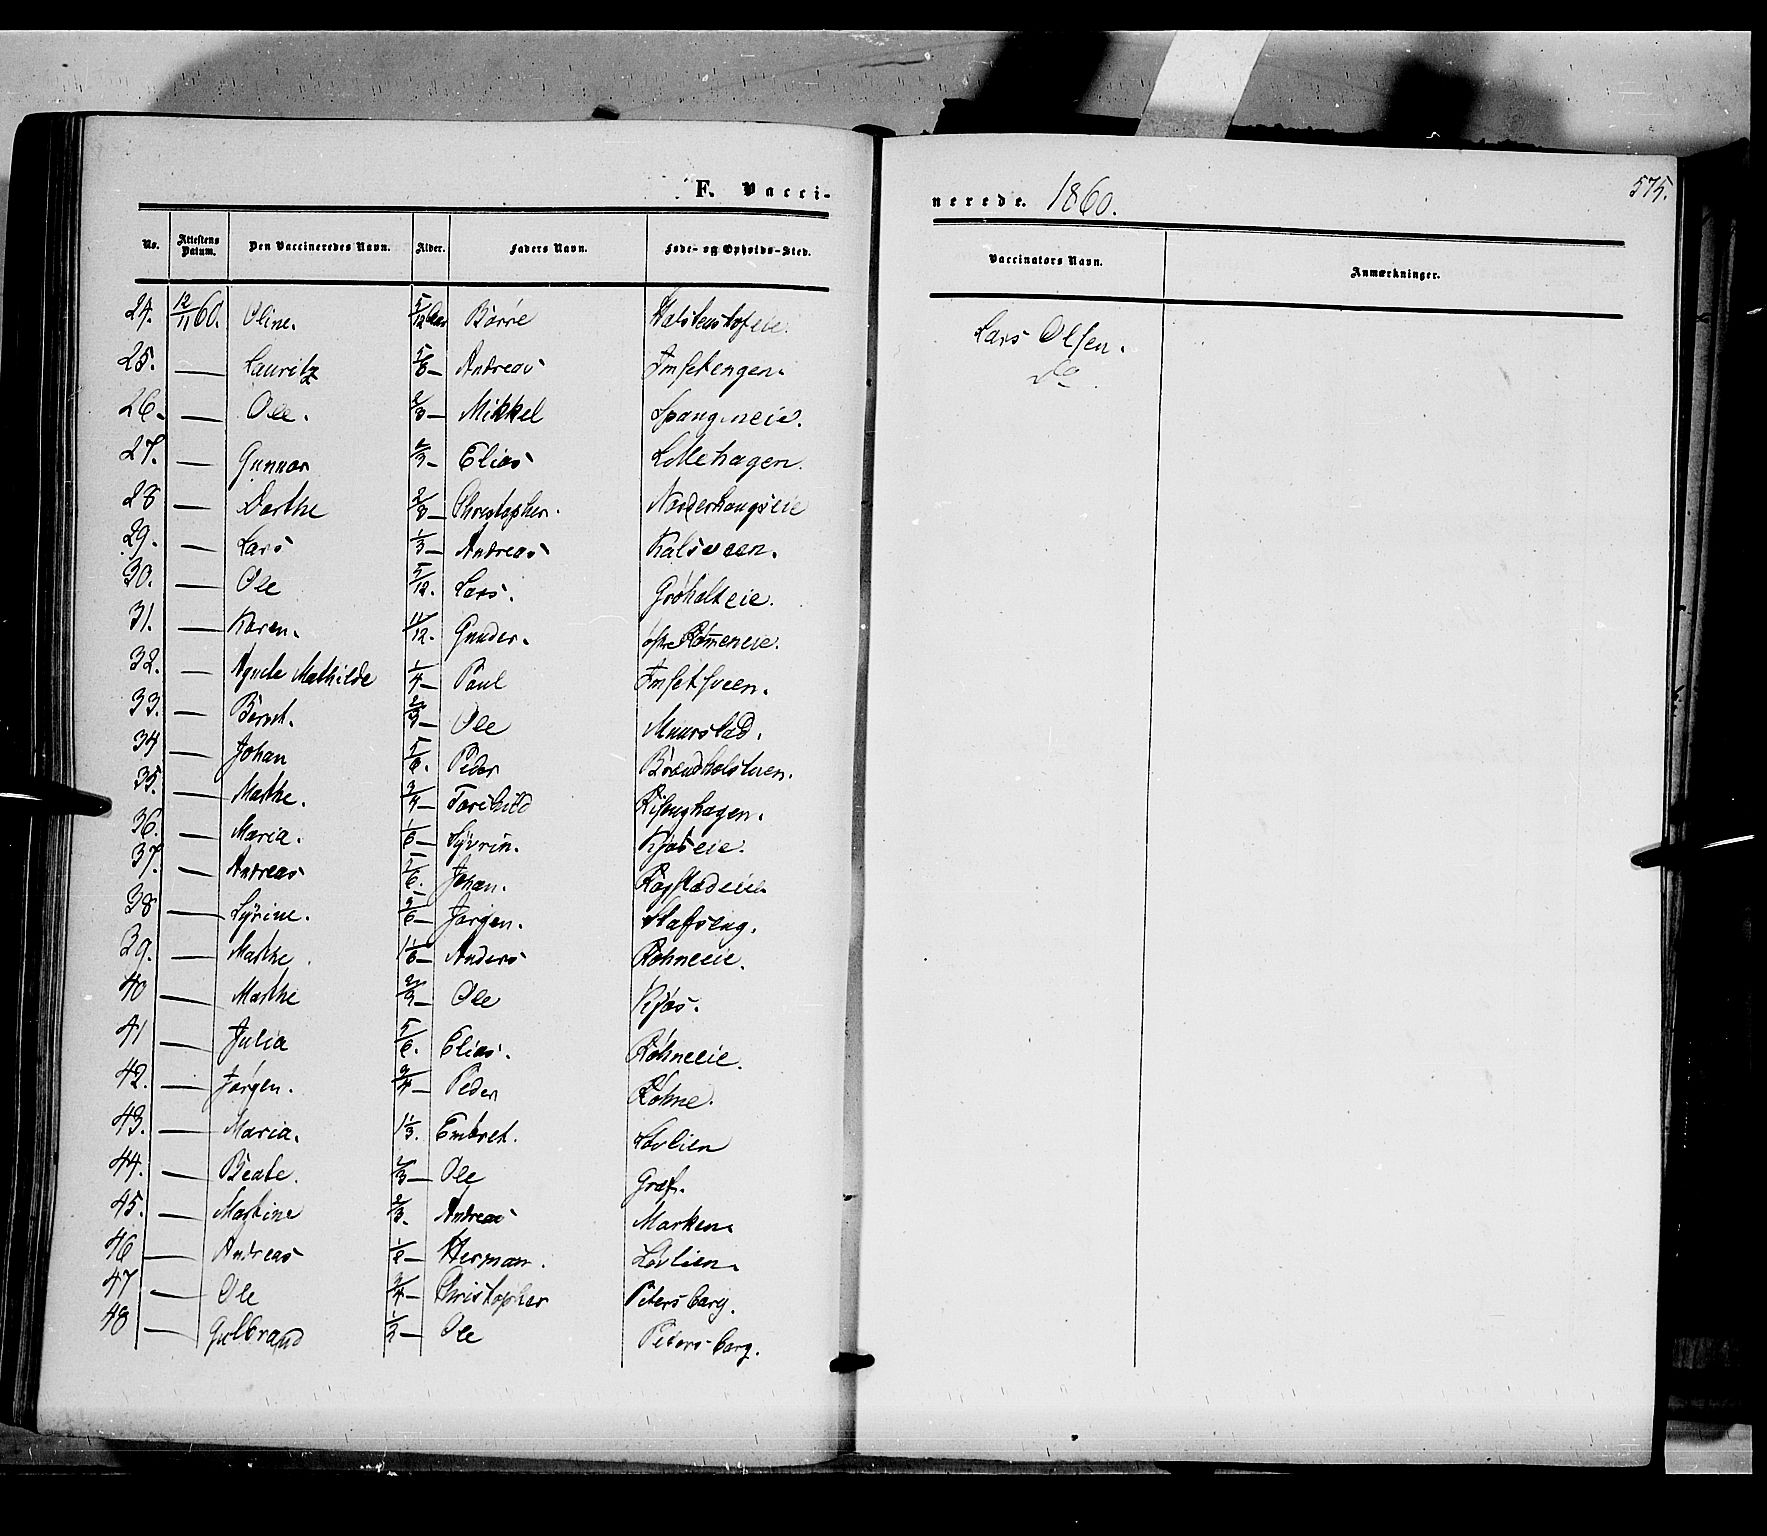 F. Vacci-
nerede. 1860.
575.
No. Attestens Datum. Den Vaccineredes Navn. Alder. Faders Navn. Føde- og Opholds-Sted. Vaccinators Navn. Anmærkninger.
24. 12/11 60. Oline. 5/12 Aar Børre Halstenshofeie. Lars Olsen.
25. — Lauritz 5/6 — Andreas Imsetengen. do
26. — Ole. 2/3 — Mikkel Spangeneie.
27. — Gunnar 2/3 — Elias Lillehagen.
28 — Dorthe 2/3 — Christopher. Norderhaugseie
29. — Lars 1/3 — Andreas Kalsveen.
30. — Ole 5/12. Lars. Grøholteie.
31. — Karen. 11/12. Gunder. Rømeneie.
32. — Agnete Mathilde 1/4 — Paul Imsetsveen.
33. — Bernt. 2/3 — Ole Muurstad.
34 — Johan 5/6. Peder
35. — Marthe. 3/4 — Torchild Risenghagen.
36. — Maria. 1/6 — Syvrin. Kjøseie.
37. — Andreas 5/6. Johan. Ragstadeie.
38 — Syrine. 5/6 — Jørgen. Stafseng.
39. — Marthe. 1 1/6 — Anders Røhneeie.
40 — Marthe 2/3 — Ole Kjøs.
41 — Julia 5/6. Elias. Røhneeie.
42. — Jørgen. 3/4 — Peder Røhne.
43. — Maria. 1 1/3. Embret. Løvlien
44. — Beate. 2/3 — Ole Græf.
45. — Martine 2/3. Andreas Marken.
46 — Andreas Herman. Løvlien.
47 — Ole 3/4 — Christopher Petersborg.
48 — Gulbrand 1/2 — Ole Petersborg.